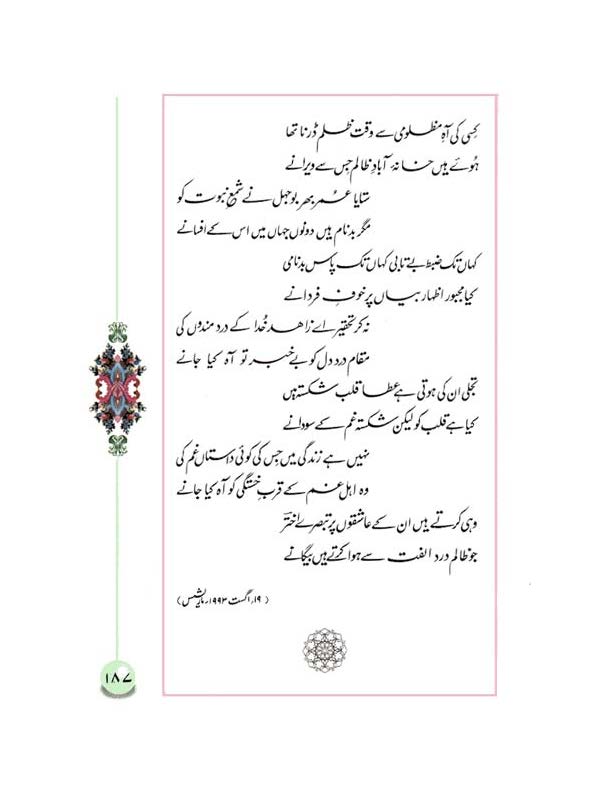 کِسی کی آہِ مظلومی سے وقت ظلم ڈرنا تھا
ہُوئے ہیں خانۂ آباد ظالم جس سے ویرانے
ستایا عُمر بھر بوجہل نے شمعِ نبوت کو
مگر بدنام ہیں دونوں جہاں میں اس کے افسانے
کہاں تک ضبط بے تابی کہاں تک پاس بدنامی
کیا مجبور اظہار بیاں پر خوفِ فردا نے
نہ کر تحقیر اے زاہد خُدا کے درد مندوں کی
مقام درد دل کو بے خبر تو آہ کیا جانے
تجلی ان کی ہوتی ہے عطا قلب شکستہ میں
کیا ہے قلب کو لیکن شکستہ غم کے سودا نے
نہیں ہے زندگی میں جس کی کوئی داستاں غم کی
وہ اہل غم کے قربِ خستگی کو آہ کیا جانے
وہی کرتے ہیں ان کے عاشقوں پر تبصرے اخترؔ
جو ظالم درد الفت سے ہوا کرتے ہیں بیگانے
(۱۹؍اگست ۱۹۹۳؍ماریشس)
۱۸۷